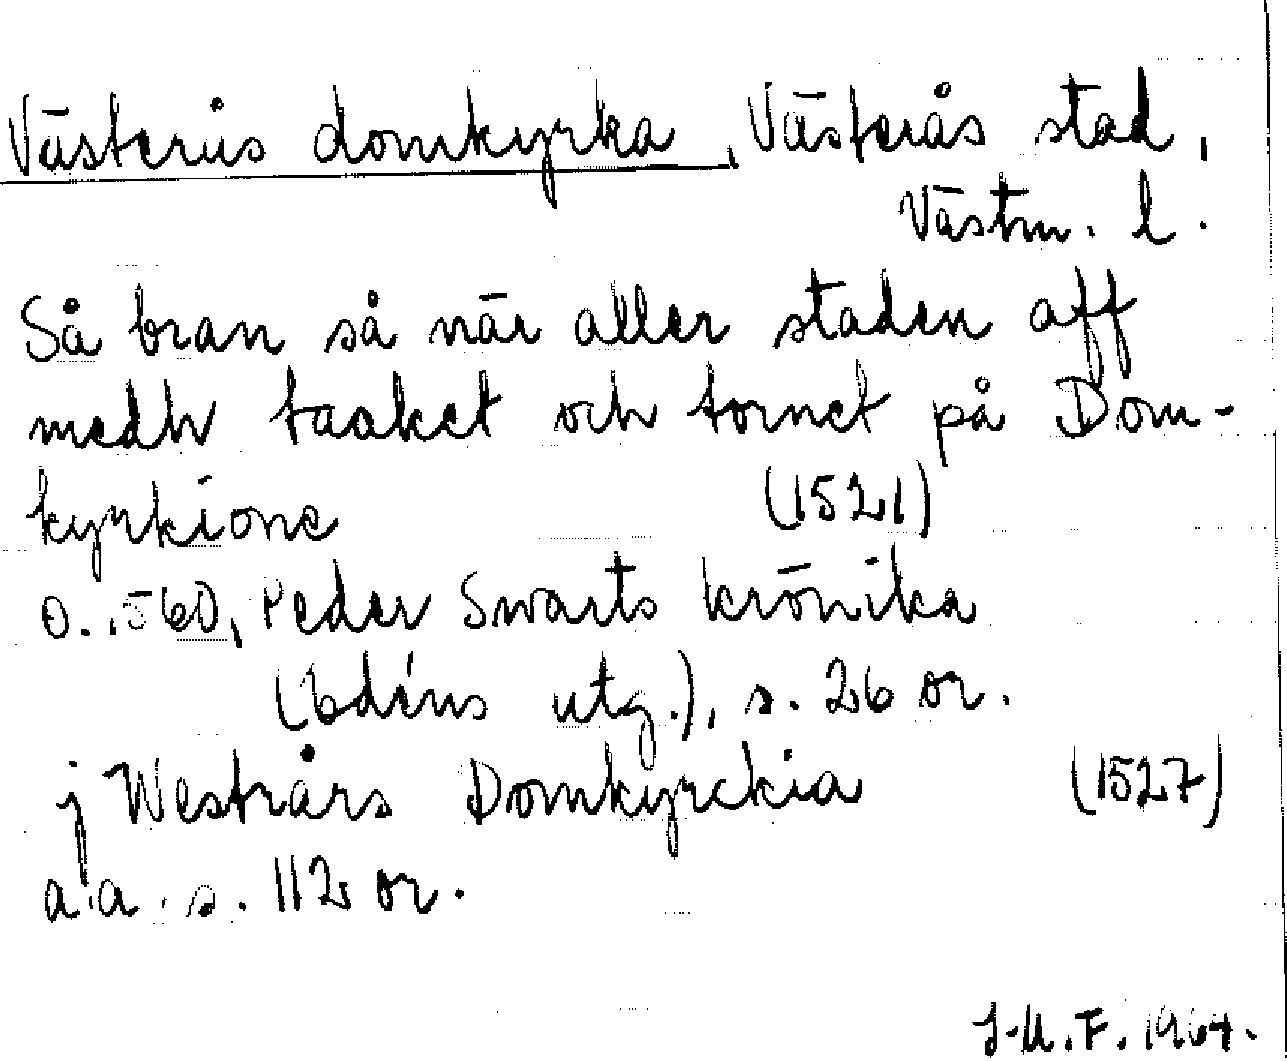 Västerås domkyrka, Västerås stad,
Västm. l.
Så bran så när aller staden aff
medh taaket och tornet på Dom-
kyrkione (1521)
o. 1560, Peder Swarts krönika
(Edéns utg.), s. 26 or.
j Westrårs Domkyrckia (1527)
a.a. s. 112 or.
J-U.F. 1964.